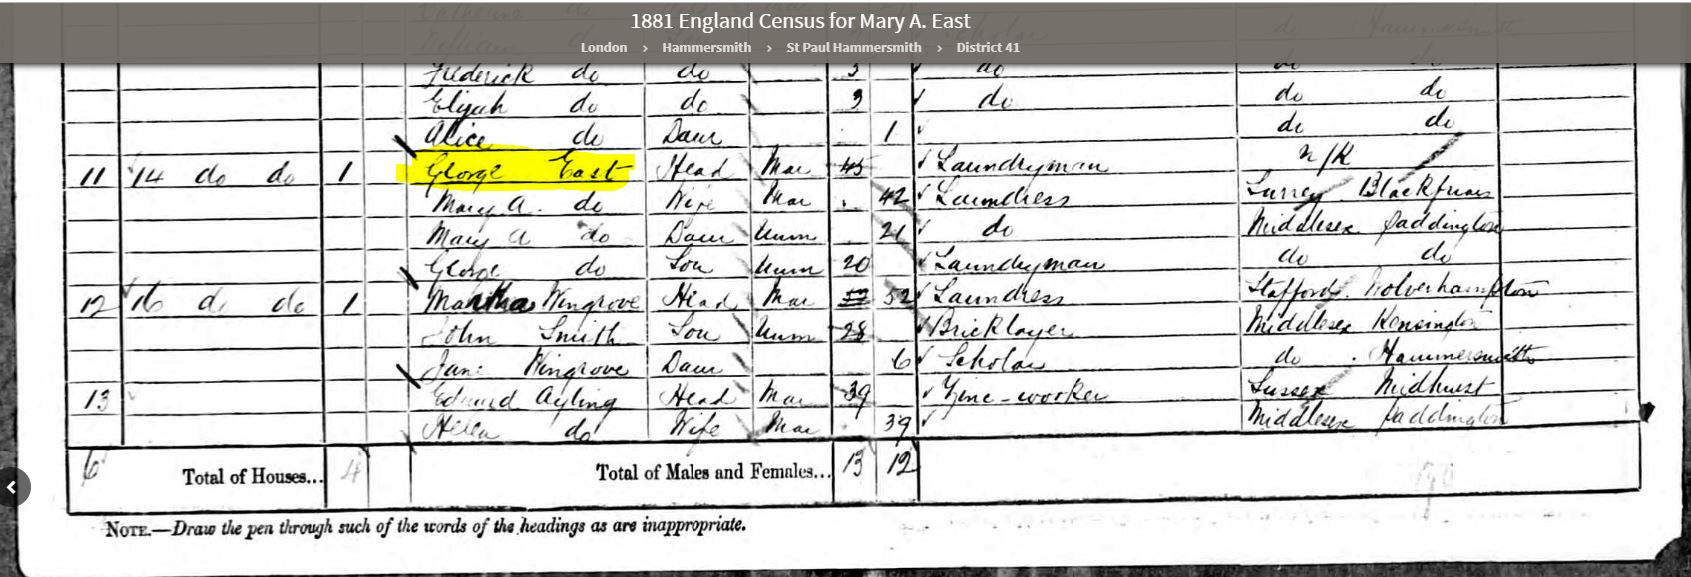 1881 England Census for Mary A. East
London › Hammersmith › St Paul Hammersmith › District 41
Frederick do do 3 do do do
Elijah do do 3 do do do
Alice do Daur 1 do do
11 14 do do 1 George East Head Mar 45 Laundryman n/K
Mary A. do Wife Mar 42 Laundress Surrey Blackfriars
Mary A do Daur Unm 21 do Middlesex Paddington
George do Son Unm 20 Laundryman do do
12 16 do do 1 Martha Wingrove Head Mar 52 Laundress Stafford. Wolverhampton
John Smith Son Unm 28 Bricklayer Middlesex Kensington
Jane Wingrove Daur 6 Scholar do Hammersmith
13 Edward Ayling Head Mar 39 Zinc-worker Sussex Midhurst
Helen do Wife Mar 39 Middlesex Paddington
6 Total of Houses... 4 Total of Males and Females... 13 12
NOTE.—Draw the pen through such of the words of the headings as are inappropriate.